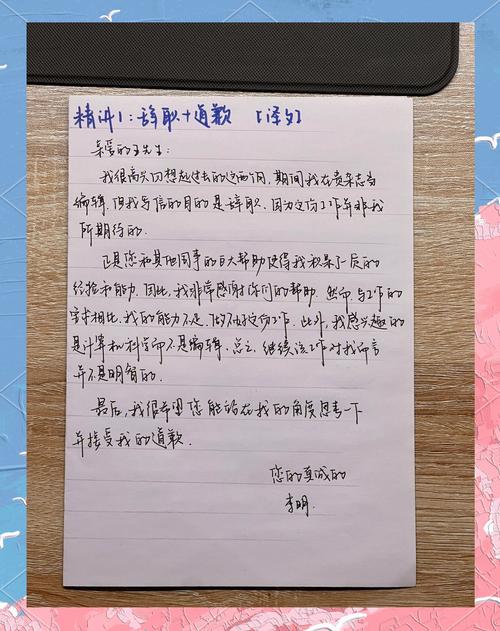 精讲1：辞职+道歉 【译文】
亲爱的王先生：
我很高兴回想起过去的这两个月，期间我在贵杂志当
编辑。但我写信的目的是辞职，因为这份工作并非我
所期待的。
正是您和其他同事的巨大帮助使得我积累了一定的
经验和能力。因此，我非常感谢你们的帮助。然而，与工作的
要求相比，我的能力不足，做不了这份工作。此外，我感兴趣的
是计算机科学而不是编辑。总之，继续该工作对我而言
并不是明智的。
最后，我很希望您能站在我的角度思考一下
并接受我的道歉。
您的真诚的
李明.